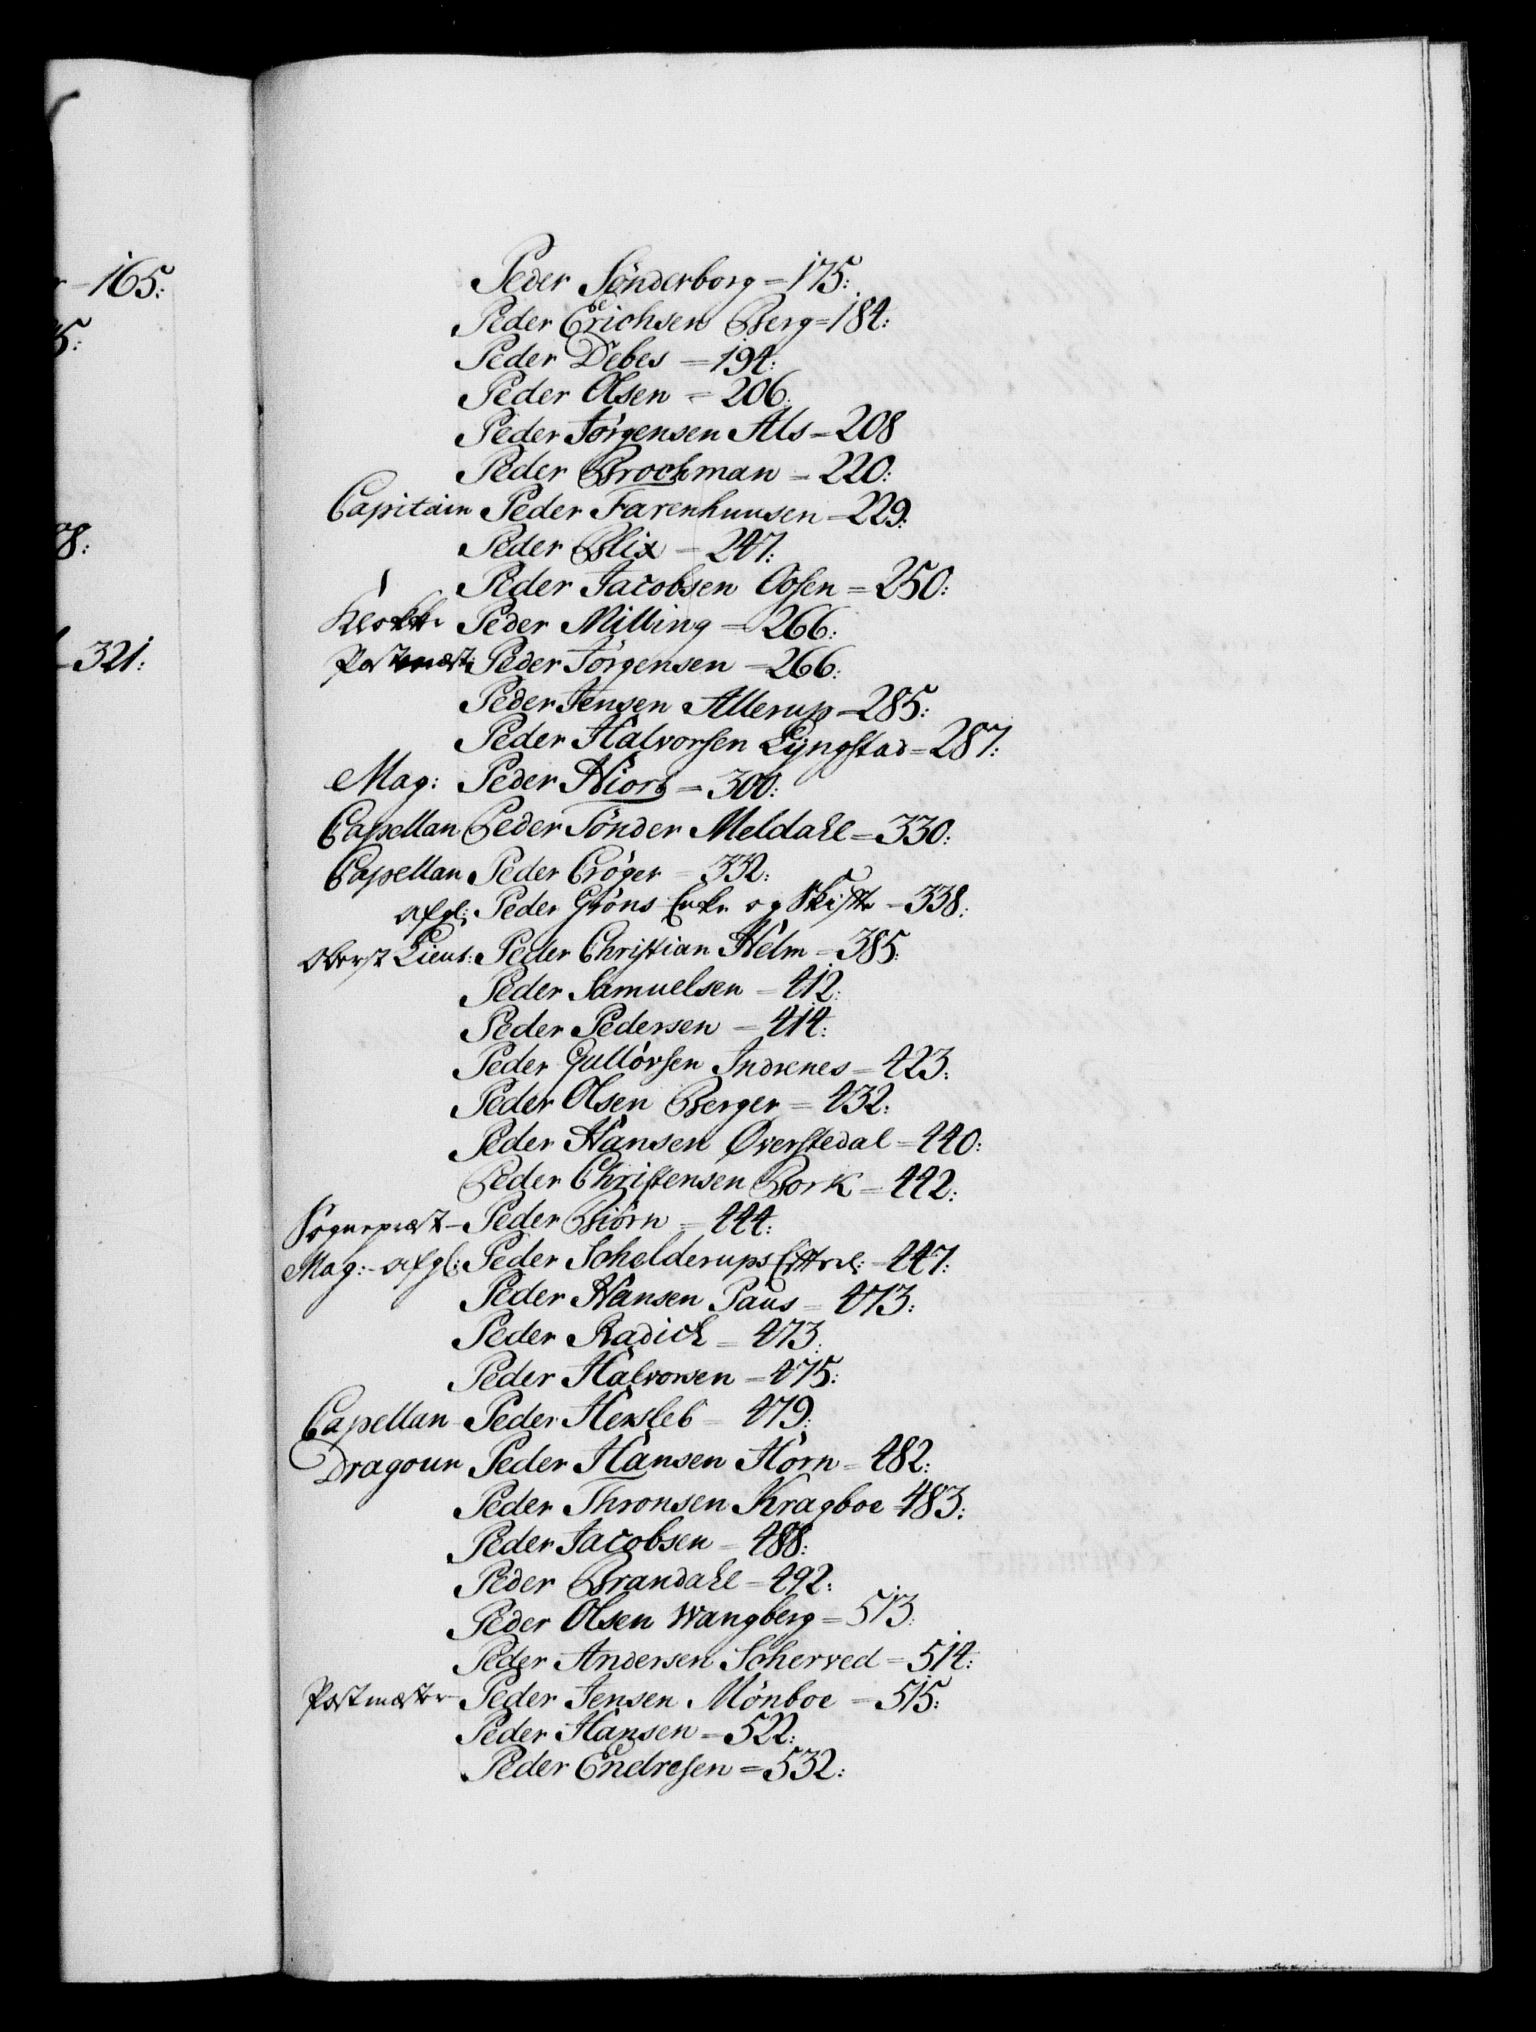 165:
5:
8:
321:
Peder Sönderborg = 175:
Peder Erichsen Berg = 184:
Peder Debes = 194:
Peder Olsen = 206:
Peder Jörgensen Als = 208
Peder Brochman = 220:
Capitain Peder Farenhuusen = 229:
Peder Blix = 247:
Peder Jacobsen Oosen = 250:
Klokk: Peder Milling = 266:
Postmest: Peder Jörgensen = 266:
Peder Jensen Allerup = 285:
Peder Halvorsen Lyngstad = 287:
Mag: Peder Hiort = 300:
Capellan Peder Tönder Meldahl = 330:
Capellan Peder Cröger = 332:
afgl: Peder Gröns Enke og Skifte = 338:
Oberst Lieut: Peder Christian Helm = 385:
Peder Samuelsen = 412:
Peder Pedersen = 414:
Peder Gullörsen Indrenes = 423:
Peder Olsen Berger = 432:
Peder Hansen Øverstedal = 440:
Peder Christensen Bork = 442:
Sognepræst Peder Biörn = 444:
Mag: afgl: Peder Schelderups = 447:
Peder Hansen Paus = 473:
Peder Radich = 473:
Peder Halvorsen = 475:
Capellan Peder Hersleb = 479:
Dragoun Peder Hansen Horn = 482:
Peder Thronsen Kragboe = 483:
Peder Jacobsen = 488:
Peder Brandahl = 492:
Peder Olsen Wangberg = 513:
Peder Andersen Scherved = 514:
Postmester Peder Jensen Mönboe = 515:
Peder Hansen = 522:
Peder Endresen = 532: